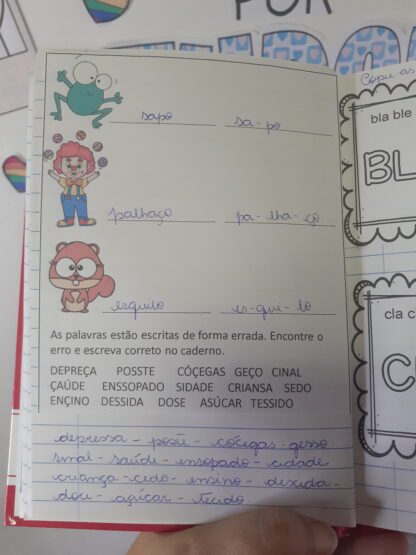 POR
Copie as
sapo sa-po
bla ble
BL
palhaço pa-lha-ço
esquilo es-qui-lo
As palavras estão escritas de forma errada. Encontre o
erro e escreva correto no caderno.
cla c
DEPREÇA POSSTE CÓÇEGAS GEÇO CINAL
C
ÇAÚDE ENSSOPADO SIDADE CRIANSA SEDO
ENÇINO DESSIDA DOSE ASÚCAR TESSIDO
depressa - poste - cócegas - gesso
sinal - saúde - ensopado - cidade
criança - cedo - ensino - descida -
doce - açúcar - tecido